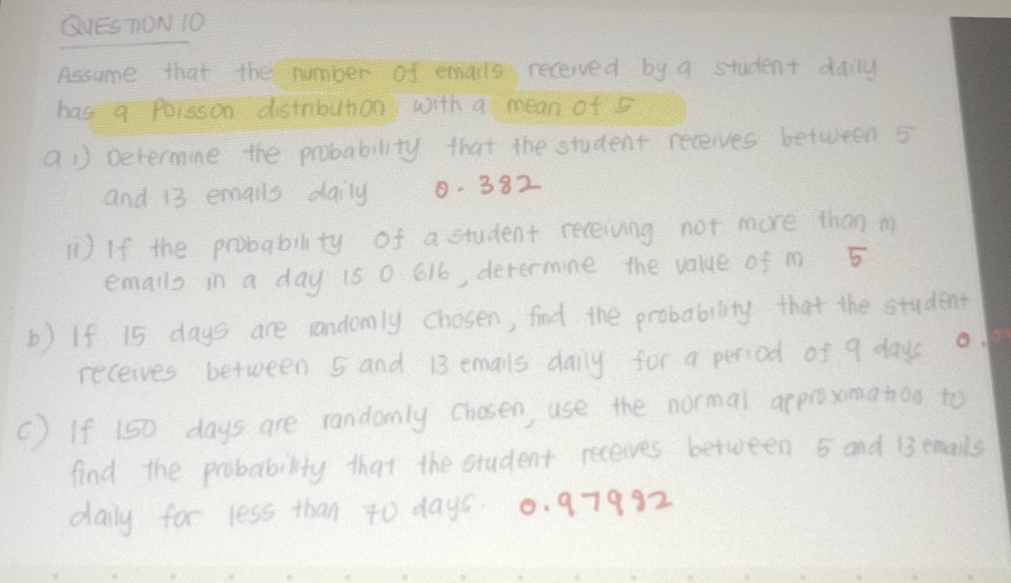 QUESTION 10
Assume that the number of emails received by a student daily
has a Poisson distribution with a mean of 5
a i) Determine the probability that the student receives between 5
and 13 emails daily 0.382
ii) If the probability of a student receiving not more than m
emails in a day is 0.616, determine the value of m 5
b) If 15 days are randomly chosen, find the probability that the student
receives between 5 and 13 emails daily for a period of 9 days 0.
c) If 150 days are randomly chosen, use the normal approximation to
find the probability that the student receives between 5 and 13 emails
daily for less than 70 days. 0.97992